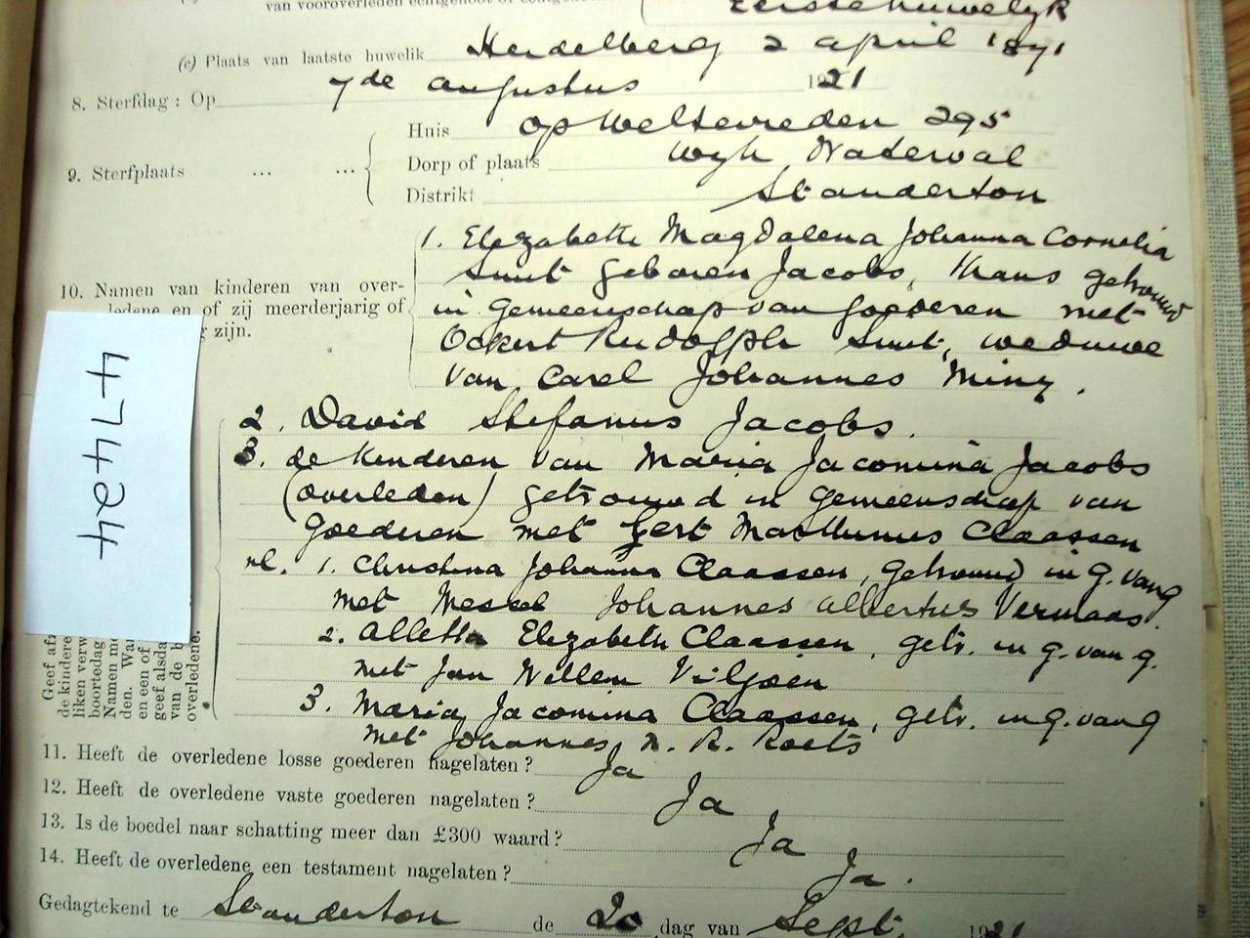 van vooroverleden echtgenoot of
Eerste huwelijk
(c) Plaats van laatste huwelik Heidelberg 2 april 1871
8. Sterfdag : Op 7de augustus 1921
9. Sterfplaats ... ... Huis op Weltevreden 295
Dorp of plaats wyk Waterval
Distrikt Standerton
10. Namen van kinderen van over-
ledene en of zij meerderjarig of
zijn.
1. Elizabeth Magdalena Johanna Cornelia
Smit geboren Jacobs, thans getrouwd
in gemeenschap van goederen met
Ockert Rudolph Smit, weduwe
van Carel Johannes Miny.
2. David Stefanus Jacobs.
3. de kinderen van Maria Jacomina Jacobs
(overleden) getrouwd in gemeenschap van
goederen met Gert Marthinus Claassen
nl. 1. Christina Johanna Claassen, getrouwd in g. van g
met Johannes Albertus Vermaas.
2. Alletta Elizabeth Claassen, getr. in g. van g.
met Jan Willem Viljoen
3. Maria Jacomina Claassen, getr. in g. van g
met Johannes N. R. Roets
47424
Geef af
de kindere
liken verw
boortedag
Namen me
den. Wa
en een of
geef alsda
van de
overledene.
11. Heeft de overledene losse goederen nagelaten? Ja
12. Heeft de overledene vaste goederen nagelaten? Ja
13. Is de boedel naar schatting meer dan £300 waard? Ja
14. Heeft de overledene een testament nagelaten? Ja.
Gedagtekend te Standerton de 20 dag van Sept. 1921